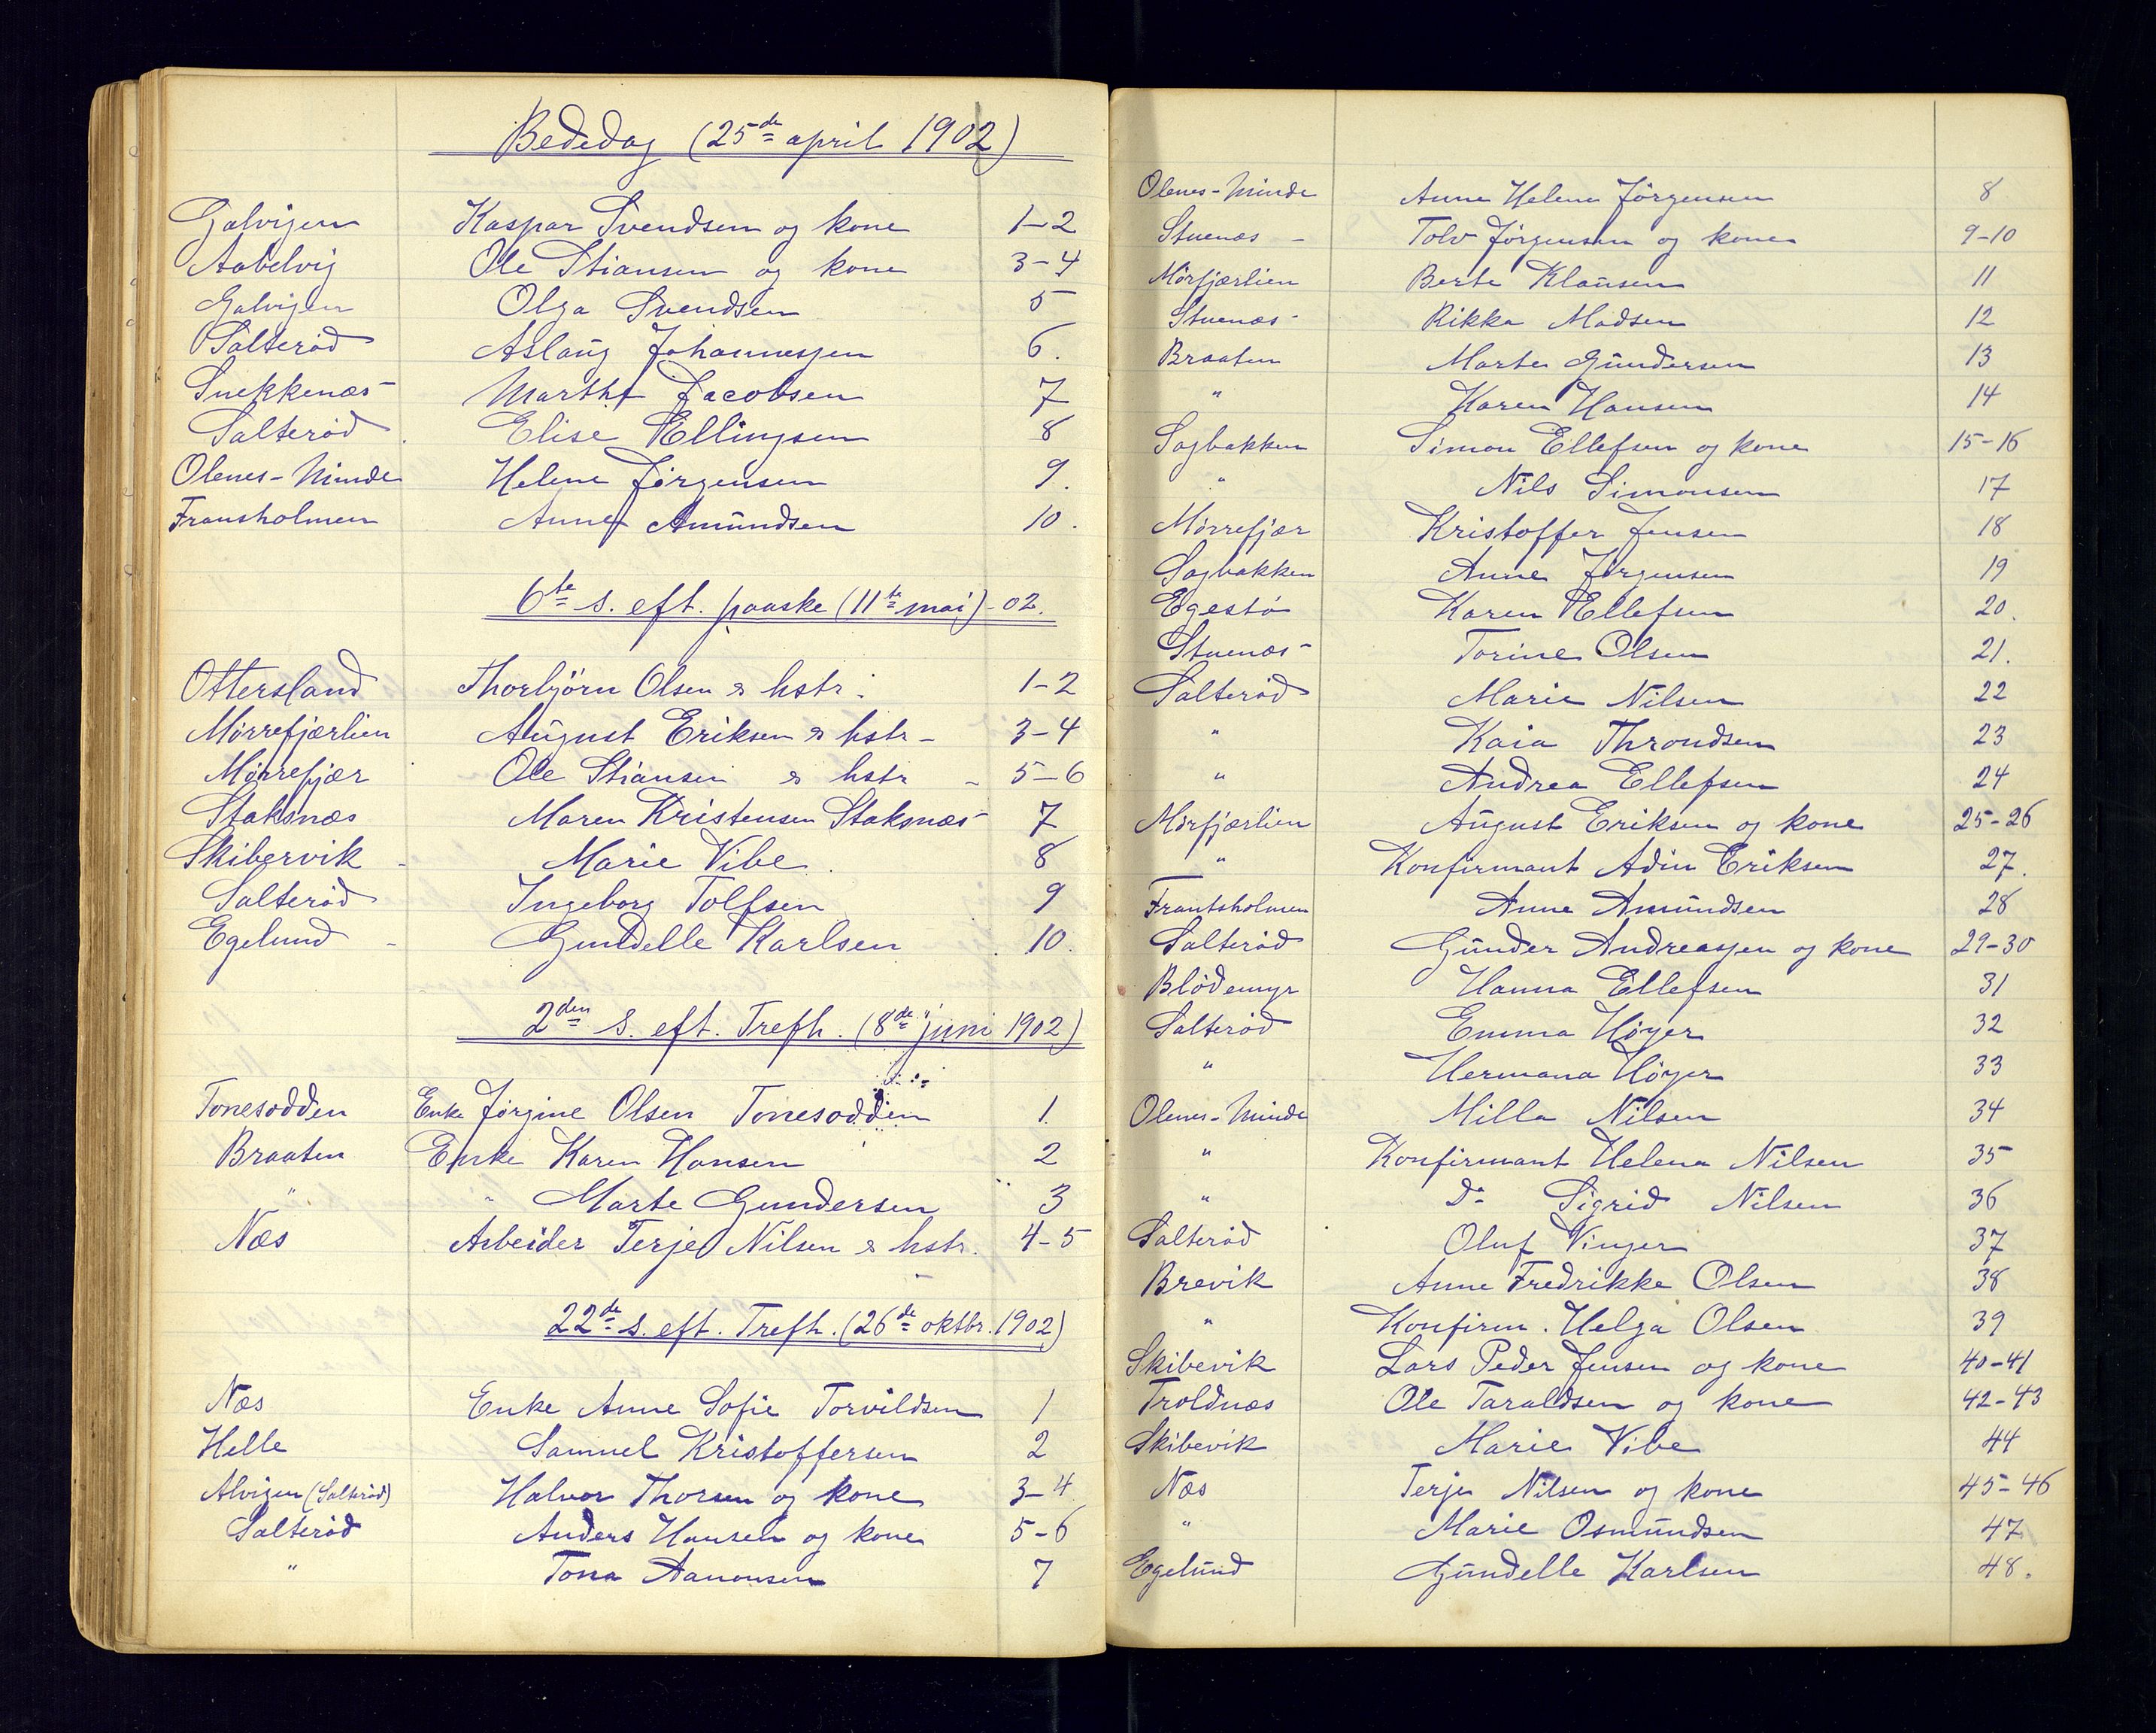 Bededag (25de april 1902)
Galvigen Kaspar Svendsen og kone 1-2
Aabelvig Ole Stiansen og kone 3-4
Galvigen Olga Svendsen 5
Salterød Aslaug Johannesen 6.
Snekkenæs Marthe Jacobsen 7
Salterød Elise Ellingsen 8
Olenes-Minde Helene Jørgensen 9.
Fransholmen Anne Amundsen 10.
6te s. eft. paaske (11te mai) -02.
Ottersland Thorbjørn Olsen & hstr. 1-2
Mørrefjærlien August Eriksen & hstr - 3-4
Mørrefjær Ole Stiansen & hstr - 5-6
Staksnæs Maren Kristensen Staksnæs 7
Skibervik - Marie Vibe 8
Salterød Ingeborg Tollfsen 9
Egelund - Gundelle Karlsen 10.
2den S. eft. Trefh. (8de juni 1902)
Tonesodden Enke Jørgine Olsen Tonesodden 1.
Braaten Enke Karen Hansen 2
" " Marte Gundersen 3
Næs Arbeider Terje Nilsen & hstr. 4-5
22de s. eft. Trefh. (26de oktbr. 1902)
Næs Enke Anne Sofie Torvildsen 1
Helle Samuel Kristoffersen 2
Alvigen (Salterød) Halvor Thorsen og kone 3-4
Salterød Anders Hansen og kone 5-6
" Tona Aanonsen 7
Olenes-Minde Anne Helene Jørgensen 8
Stuenæs - Tolv Jørgensen og kone 9-10
Mørfjærlien Berte Klausen 11
Stuenæs - Rikka Madsen 12
Braaten Marte Gundersen 13
" Karen Hansen 14
Sagbakken Simon Ellefsen og kone 15-16
" Nils Simonsen 17
Mørrefjær Kristoffer Jensen 18
Sagbakken Anne Jørgensen 19
Egestø Karen Ellefsen 20.
Stuenæs - Torine Olsen 21.
Salterød Marie Nilsen 22
" Kaia Throndsen 23
" Andrea Ellefsen 24
Mørfjærlien August Eriksen og kone 25-26
" Konfirmant Adin Eriksen 27.
Frantsholmen Anne Amundsen 28
Salterød Gunder Andreasen og kone 29-30
Blødemyr Hanna Ellefsen 31
Salterød Emma Høyer 32
" Hermana Høyer 33
Olenes-Minde Milla Nilsen 34
" Konfirmant Helena Nilsen 35
" Do Sigrid Nilsen 36
Salterød Oluf Vinger 37
Brevik Anne Fredrikke Olsen 38
" Konfirm. Helga Olsen 39
Skibevik Lars Peder Jensen og kone 40-41
Troldnæs Ole Taraldsen og kone 42-43
Skibevik Marie Vibe 44
Næs Terje Nilsen og kone 45-46
" Marie Osmundsen 47
Egelund Gundelle Karlsen 48.